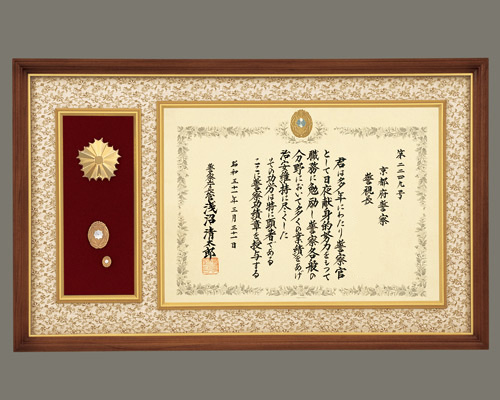 第二二四九号
京都府警察
警視長
君は多年にわたり警察官
として日夜献身的努力をもって
職務に勉励し警察各般の
分野において多くの業績をあげ
治安維持に尽くした
その功労は特に顕著である
ここに警察功績章を授与する
昭和三十一年三月三十一日
警察庁長官 浅沼清太郎